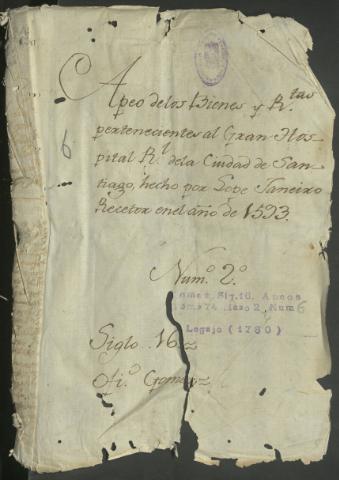 6
Apeo delos Bienes y R.tas
pertenecientes al Gran Hos-
pital R.l dela Ciudad de San-
tiago, hecho por Lope Janeiro
Recetor en el año de 1593.
Num.o 2.o
Sig. 10. Apeos
74 Mazo 2, Num 6
Legajo (1780)
Siglo 16